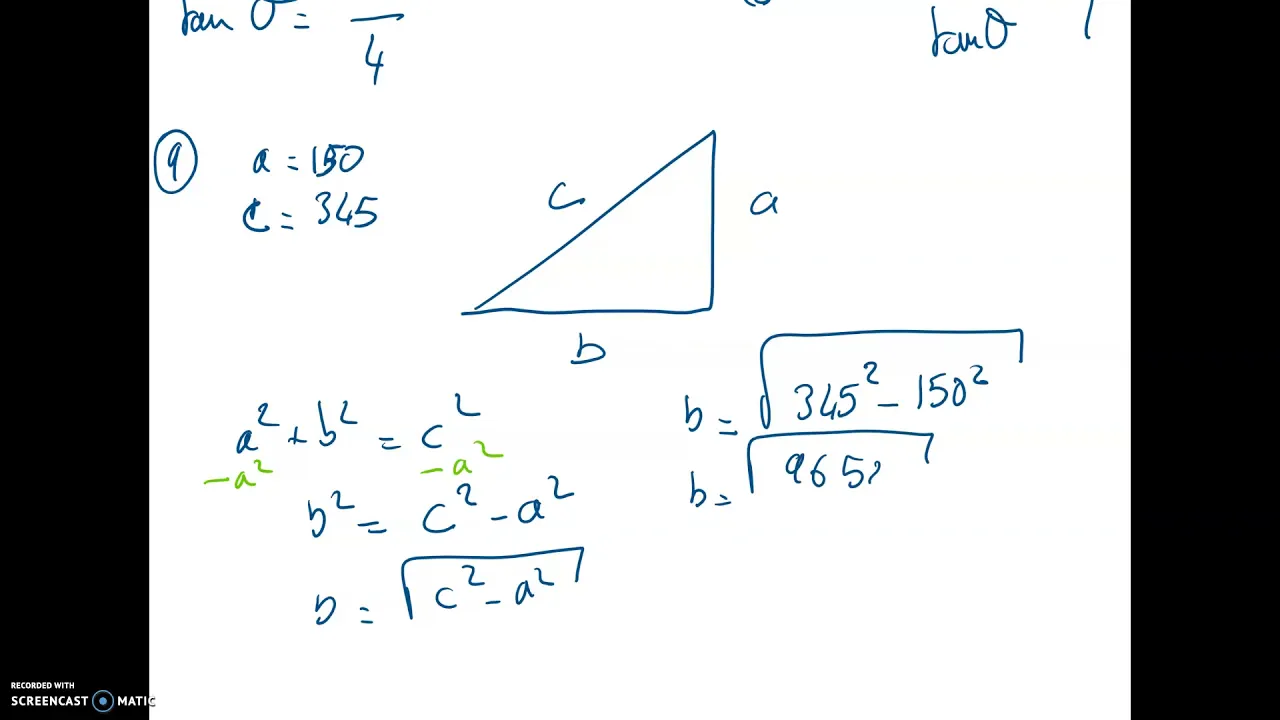 tan θ =
4
tan θ
9
a = 150
c = 345
c
a
b
a² + b² = c²
-a² -a²
b² = c² - a²
b = √c² - a²
b = √345² - 150²
b = √965
RECORDED WITH
SCREENCAST MATIC